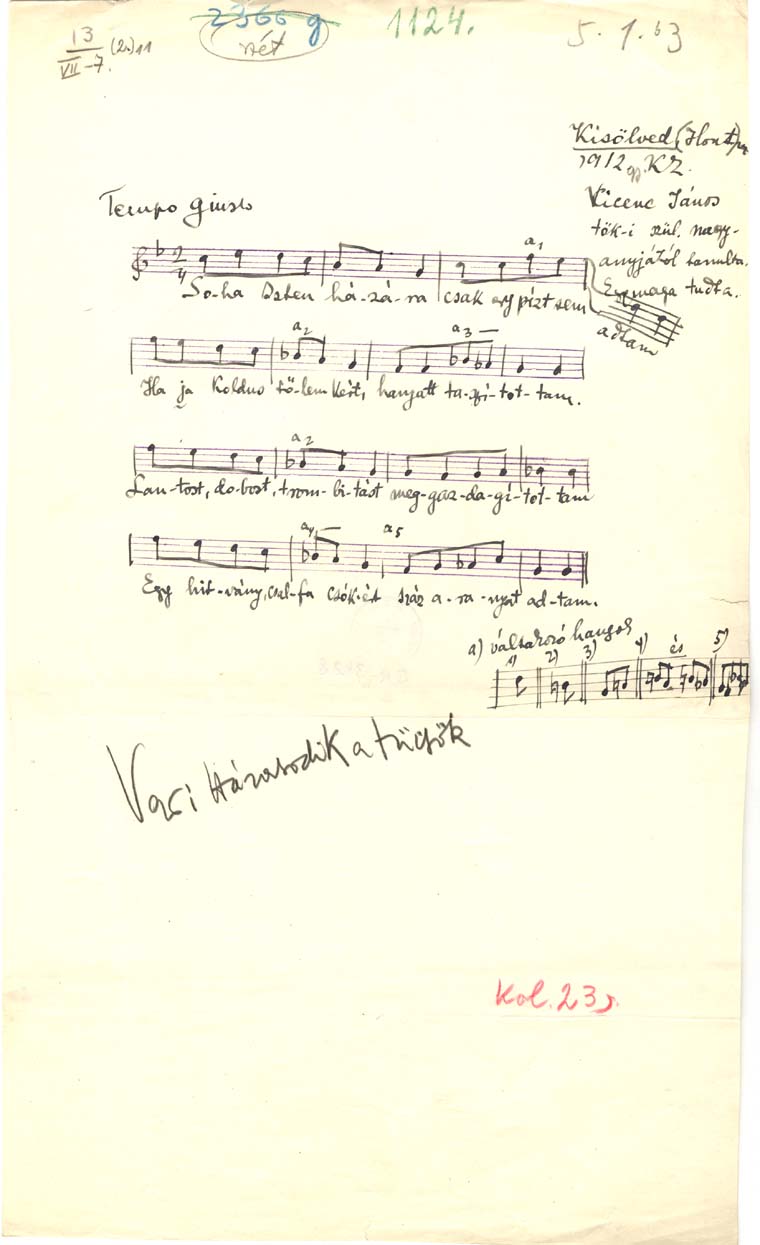 2366 g
1124.
5. 1. 63
13 (2.) 11
VII -7.
Kisölved (Hont)m
1912 KZ.
Vicenc János
tök-i szül. nagy-
anyjától tanulta.
Egymaga tudta.
Tempo giusto
a1
So-ha Isten há-zá-ra csak egy pízt sem
adtam
a2 a3
Ha ja Koldus tő-lem kért, hanyatt ta-szi-tot-tam.
a2
Lan-tost, do-bost, trom-bi-tást meg-gaz-da-gí-tot-tam
a4 a5
Egy hit-vány, csal-fa csók-ért száz a-ra-nyat ad-tam.
a) váltakozó hangok
1) 2) 3) 4) és 5)
Vari Házasodik a tücsök
Kol. 23